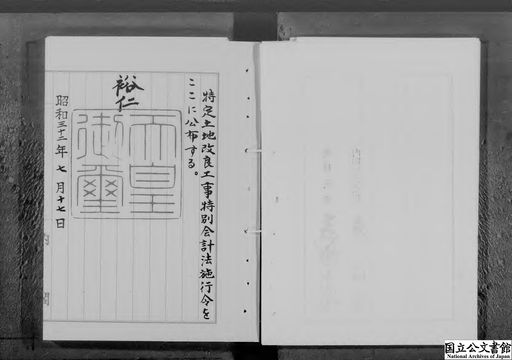 特定土地改良工事特別会計法施行令を
ここに公布する。
裕仁
天皇
御璽
昭和三十二年七月十七日
国立公文書館
National Archives of Japan